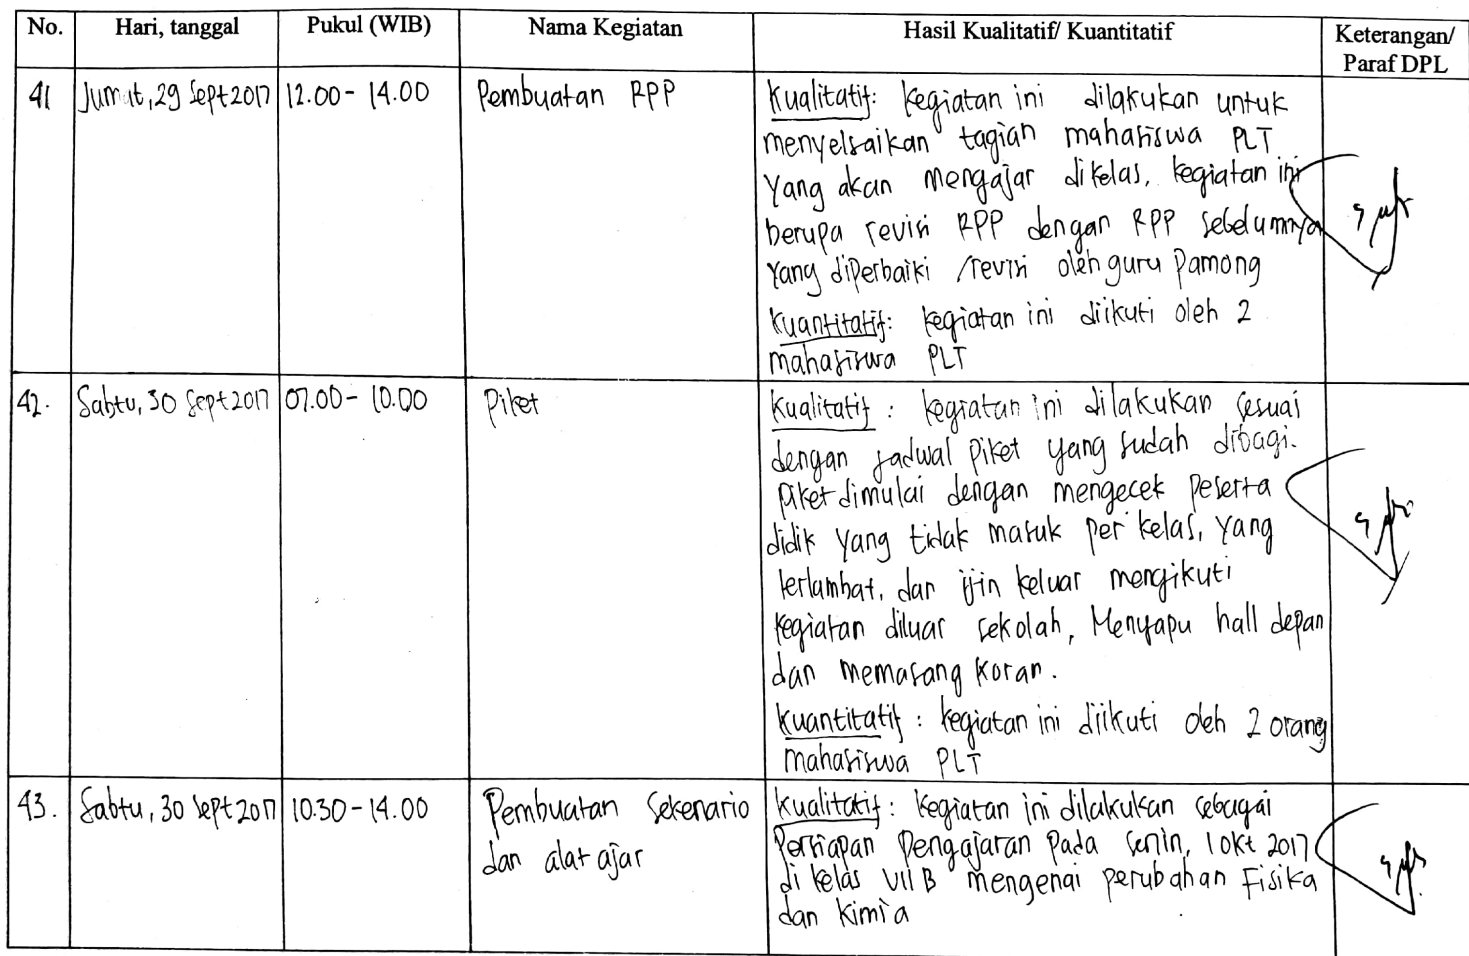 No. Hari, tanggal Pukul (WIB) Nama Kegiatan Hasil Kualitatif/ Kuantitatif Keterangan/
Paraf DPL
41 Jumat, 29 Sept 2017 12.00 - 14.00 Pembuatan RPP Kualitatif: kegiatan ini dilakukan untuk
menyelsaikan tagian mahasiswa PLT
yang akan mengajar dikelas, kegiatan ini
berupa revisi RPP dengan RPP sebelumnya
yang diperbaiki /revisi oleh guru pamong
Kuantitatif: kegiatan ini diikuti oleh 2
mahasiswa PLT
42. Sabtu, 30 Sept 2017 07.00 - 10.00 Piket Kualitatif : kegiatan ini dilakukan sesuai
dengan jadwal piket yang sudah dibagi.
Piket dimulai dengan mengecek peserta
didik yang tidak masuk per kelas, yang
terlambat, dan ijin keluar mengikuti
kegiatan diluar sekolah, Menyapu hall depan
dan memasang koran.
Kuantitatif : kegiatan ini diikuti oleh 2 orang
mahasiswa PLT
43. Sabtu, 30 Sept 2017 10.30 - 14.00 Pembuatan Sekenario Kualitatif : kegiatan ini dilakukan sebagai
dan alat ajar persiapan pengajaran pada senin, 1 okt 2017
di kelas VII B mengenai perubahan Fisika
dan kimia